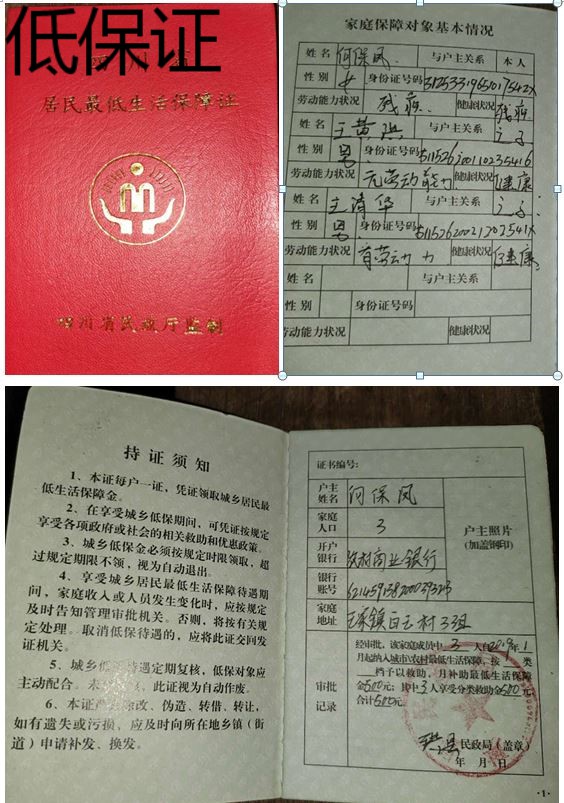 低保证
居民最低生活保障证
四川省民政厅监制
家庭保障对象基本情况
姓名 何保凤 与户主关系 本人
性别 女 身份证号码
劳动能力状况 残疾 健康状况 残疾
姓名 王黄琪 与户主关系 之子
性别 男 身份证号码
劳动能力状况 无劳动能力 健康状况 健康
姓名 王清华 与户主关系 之子
性别 男 身份证号码
劳动能力状况 有劳动力 健康状况 健康
姓名 与户主关系
性别 身份证号码
劳动能力状况 健康状况
持证须知
1、本证每户一证，凭证领取城乡居民最
低生活保障金。
2、在享受城乡低保期间，可凭证按规定
享受各项政府或社会的相关救助和优惠政策。
3、城乡低保金必须按规定时限领取，超
过规定期限不领，视为自动退出。
4、享受城乡居民最低生活保障待遇期
间，家庭收入或人员发生变化时，应按规定
及时告知管理审批机关。否则，将按有关规
定处理。取消低保待遇的，应将此证交回发
证机关。
5、城乡低保待遇定期复核，低保对象应
主动配合。未 ，此证视为自动作废。
6、本证严禁涂改、伪造、转借、转让，
如有遗失或污损，应及时向所在地乡镇（街
道）申请补发、换发。
证书编号：
户主姓名 何保凤
家庭人口 3
户主照片
(加盖钢印)
开户银行 农村商业银行
银行账号
家庭地址 王家镇白云村3组
经审批，该家庭成员中 3 人自2019年1
月起纳入城市\农村最低生活保障，按 类
档予以救助，月补助最低生活保障
金500元；其中3人享受分类救助金500元，
合计500元。
审批记录
珙县民政局（盖章）
年 月 日
·1·